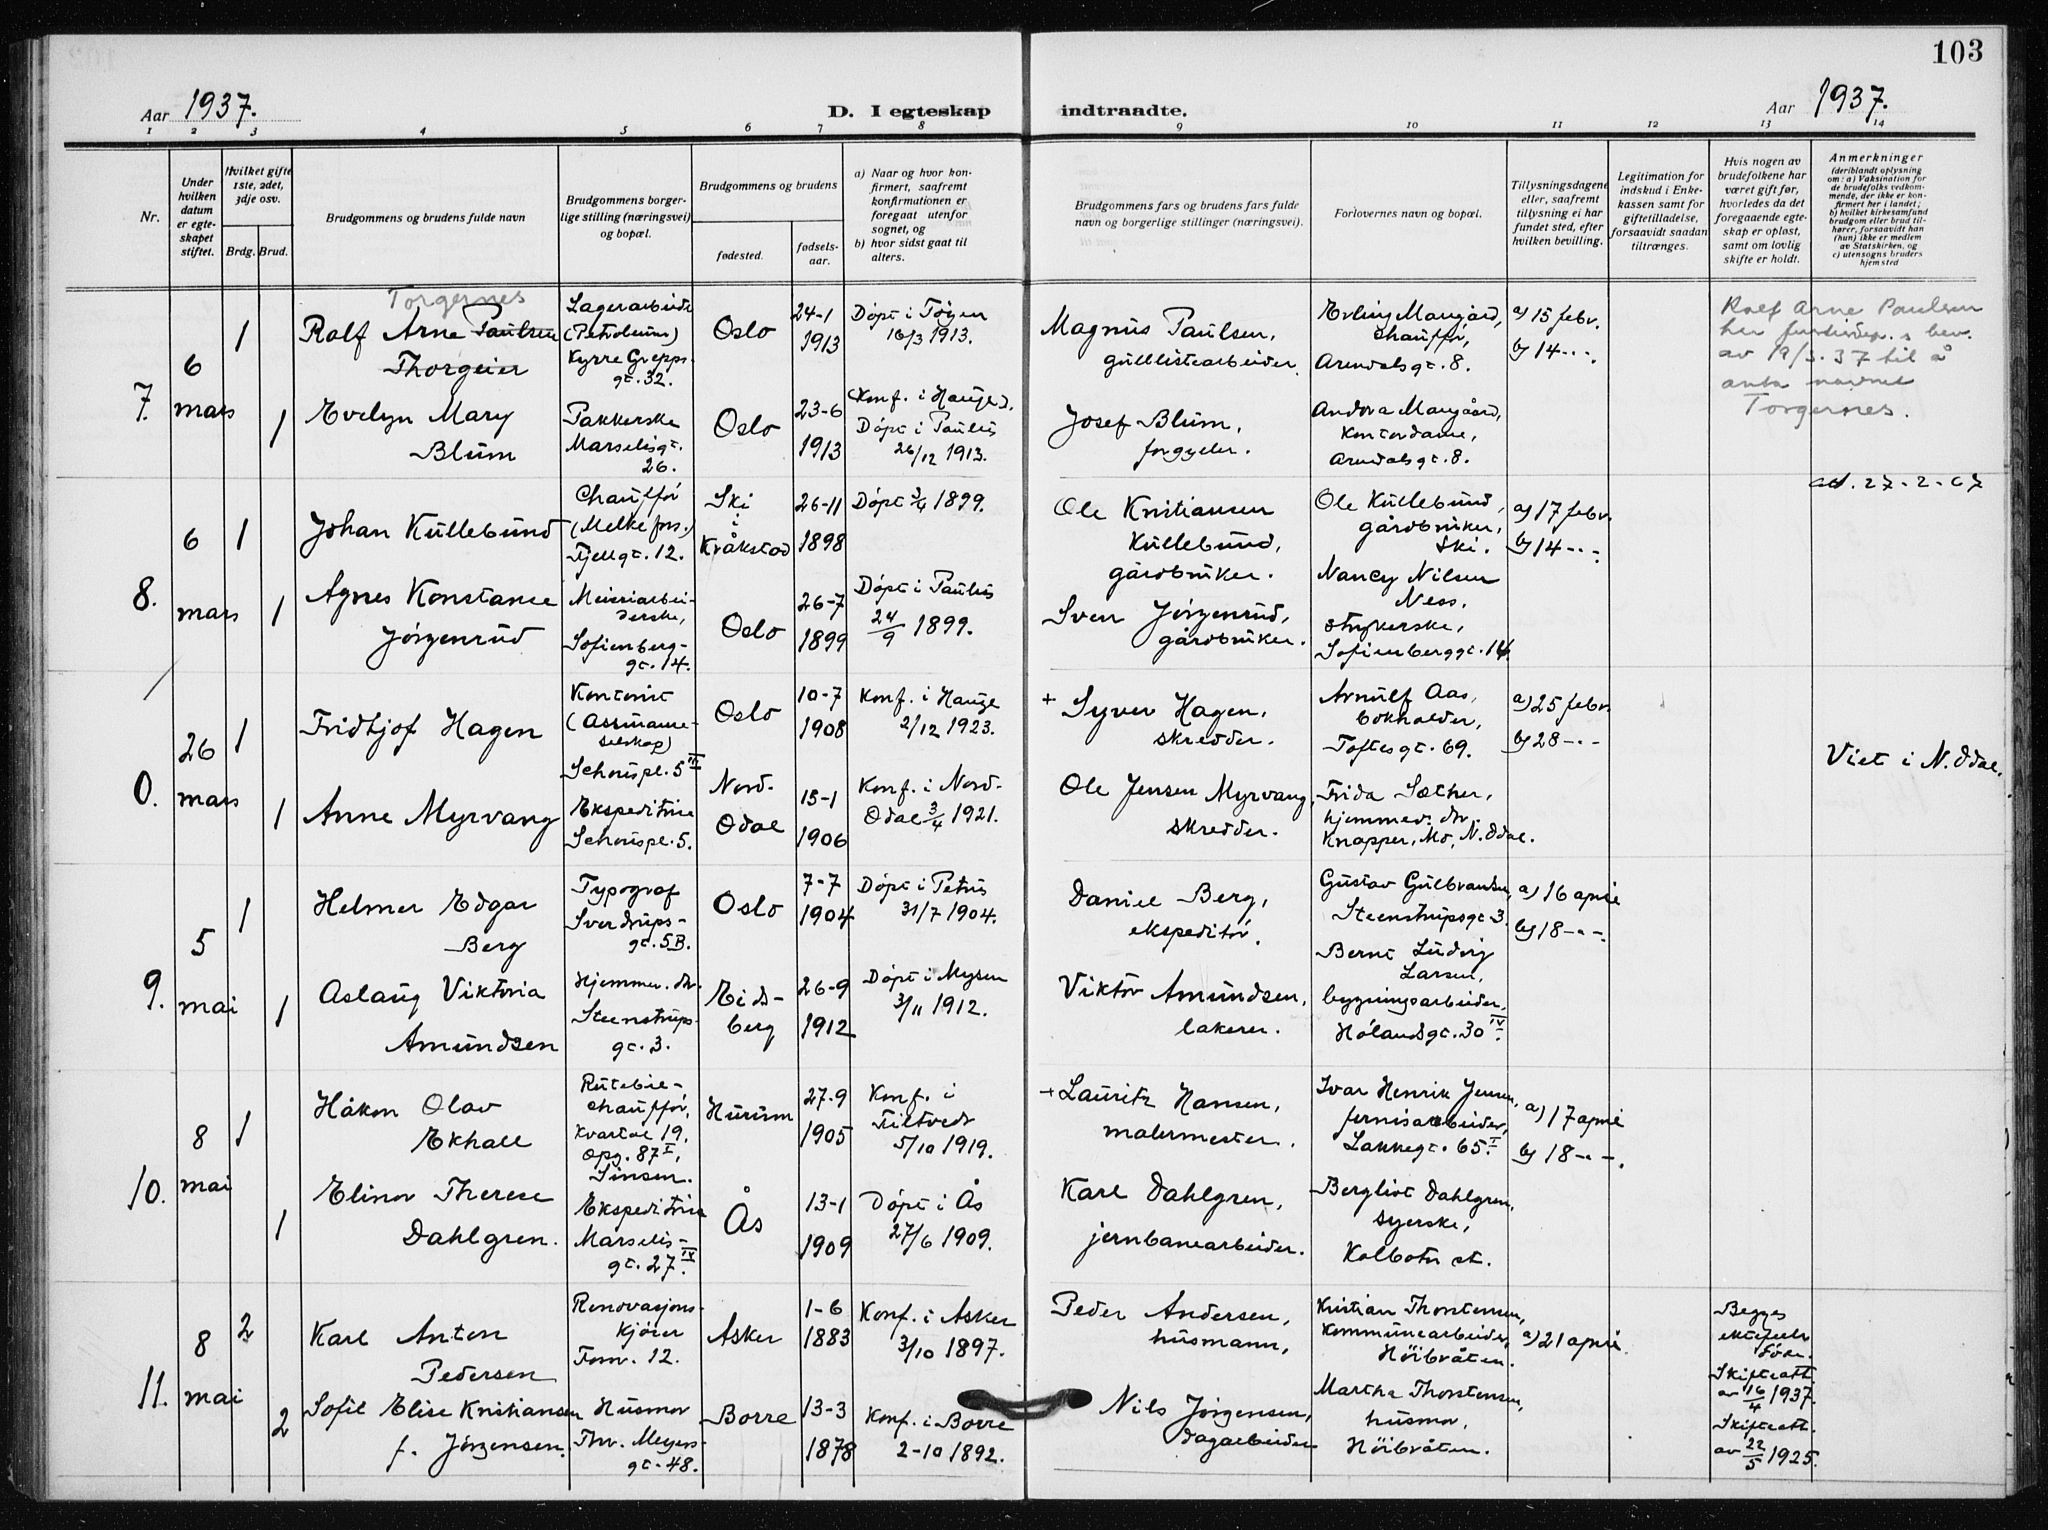 103
Aar 1937.
D. I egteskap indtraadte.
Aar 1937.
1 2 3 4 5 6 7 8 9 10 11 12 13 14
Nr.
Under
hvilken
datum
er egte-
skapet
stiftet.
Hvilket gifte
1ste, 2det,
3dje osv.
Brdg. Brud.
Brudgommens og brudens fulde navn
Brudgommens og brudens borger-
lige stilling (næringsvei)
og bopæl.
Brudgommens og brudens
fødested.
fødsels-
aar.
a) Naar og hvor kon-
firmert, saafremt
konfirmationen er
foregaat utenfor
sognet, og
b) hvor sidst gaat til
alters.
Brudgommens fars og brudens fars fulde
navn og borgerlige stillinger (næringsvei).
Forlovernes navn og bopæl.
Tillysningsdagene
eller, saafremt
tillysning ei har
fundet sted, efter
hvilken bevilling.
Legitimation for
indskud i Enke-
kassen samt for
giftetilladelse,
forsaavidt saadan
tiltrænges.
Hvis nogen av
brudefolkene har
været gift før,
hvorledes da det
foregaaende egte-
skap er opløst,
samt om lovlig
skifte er holdt.
Anmerkninger
(deriblandt oplysning
om: a) Vaksination for
de brudefolks vedkom-
mende, der ikke er kon-
firmert her i landet;
b) hvilket kirkesamfund
brudgom eller brud til-
hører, forsaavidt han
(hun) ikke er medlem
av Statskirken, og
c) utensogns bruders
hjemsted
7.
6
mars
1
Torgernes
Ralf Arne Paulsen
Thorgeier
Lagerarbeider
(Petroleum)
Kyrre Grepps-
gt. 32.
Oslo
24-1
1913
Døpt i Tøyen
16/3 1913.
Magnus Paulsen,
gullistearbeider.
Erling Maugård,
Chauffør,
Arendalsgt. 8.
a) 15 febr.
b) 14 - - -.
Ralf Arne Paulsen
av 19/3. 37 til å
anta navnet
Torgernes.
1
Evelyn Mary
Blum
Pakkerske
Marselisgt.
26.
Oslo
23-6
1913
(Konf. i Hauge).
Døpt i Paulus
26/12 1913.
Josef Blum,
forgyller.
Andora Maugård,
Kontordame,
Arendalsgt. 8.
8.
6
mars
1
Johan Kullebund
Chauffør
(Melkefors.)
Fjellgt. 12.
Ski
i
Kråkstad
26-11
1898
Døpt 3/4 1899.
Ole Kristiansen
Kullebund,
gårdbruker.
Ole Kullebund,
gårdbruker,
Ski.
a) 17 febr.
b) 14 - - -
27-2-67
1
Agnes Konstanse
Jørgenrud
Meieriarbei-
derske,
Sofienberg-
gt. 14.
Oslo
26-7
1899
Døpt i Paulus
24/9 1899.
Sven Jørgenrud,
gårdbruker.
Nancy Nilsen
Ness,
strykerske,
Sofienberggt. 14.
0.
26
mars
1
Fridtjof Hagen
Kontorist
(Assuranse-
selskap)
Schouspl. 5 IV
Oslo
10-7
1908
Konf. i Hauge
2/12 1923.
+ Syver Hagen,
skredder.
Arnulf Aas,
bokholder,
Toftesgt. 69.
a) 25 febr.
b) 28 - - -
Viet i N. Odal.
1
Anne Myrvang
Ekspeditrise
Schouspl. 5.
Nord-
Odal
15-1
1906
Konf. i Nord-
Odal 3/4 1921.
Ole Jensen Myrvang,
skredder.
Frida Sæther,
hjemmev. dtr.
Knapper, Mo, N. Odal.
9.
5
mai
1
Helmer Edgar
Berg
Typograf
Sverdrups-
gt. 5B.
Oslo
7-7
1904
Døpt i Petrus
31/7 1904.
Daniel Berg,
ekspeditør.
Gustav Gulbrandsen,
Steenstrupsgt 3.
a) 16 april
b) 18 - - -.
1
Aslaug Viktoria
Amundsen
Hjemmev. dtr.
Steenstrups-
gt. 3.
Eids-
berg
26-9
1912
Døpt i Mysen
3/11 1912.
Viktor Amundsen,
lakerer.
Bernt Ludvig
Larsen,
bygningsarbeider,
Hølandsgt. 30 IV.
10.
8
mai
1
Håkon Olav
Ekhall
Rutebil-
chauffør,
Kvartal 19,
Opg. 87 I,
Sinsen.
Hurum
27-9
1905
Konf. i
Filtvedt
5/10 1919.
+ Lauritz Hansen,
malermester.
Ivar Henrik Jensen,
fernisarbeider,
Lakkegt. 65 I.
a) 17 april
b) 18 - - -.
1
Elinor Therese
Dahlgren.
Ekspeditrise
Marselis-
gt. 27 IV.
Ås
13-1
1909
Døpt i Ås
27/6 1909.
Karl Dahlgren,
jernbanearbeider.
Bergliot Dahlgren,
syerske,
Kolbotn st.
11.
8
mai
2
Karl Anton
Pedersen
Renovasjons-
kjører
Fornv. 12.
Asker
1-6
1883
Konf. i Asker
3/10 1897.
Peder Andersen,
husmann,
Kristian Thorstensen,
Kommunearbeider,
Høibråten.
a) 21 april.
Begges
ektefeller
døde.
Skifteatt.
av 16/4 1937.
Skifteatt.
av 22/5 1925.
2
Sofie Elise Kristiansen
f. Jørgensen.
Husmor
Thv. Meyers-
gt. 48.
Borre
13-3
1878
Konf. i Borre
2-10 1892.
Nils Jørgensen,
dagarbeider
Martha Thorstensen,
husmor,
Høibråten.